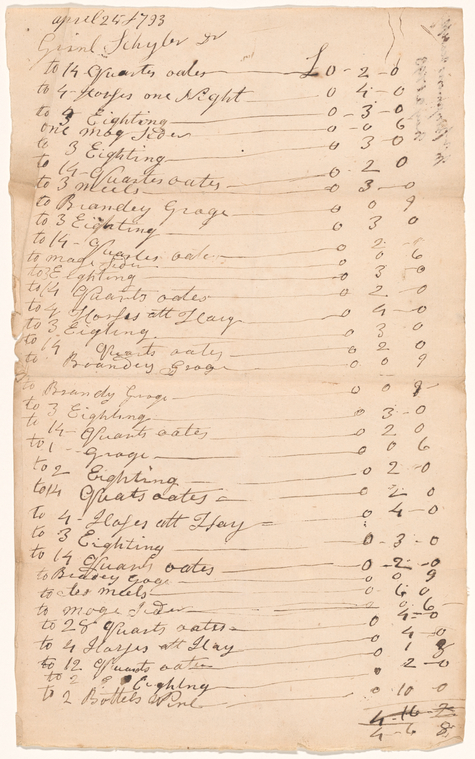 april 25 1793
Ginnl Schyler Dr
to 14 Quartes oates £0-2-0
to 4 Horses one Night 0-4-0
to 3 Eighting 0-3-0
one mog Sider 0-0 6
to 3 Eighting 0 3 0
to 14 Quartes oates 0 2 0
to 3 meels 0 3-0
to Brandey Groge 0 0 9
to 3 Eighting 0 3 0
to 14 Quartes oates 0 2 0
to mog Sider 0 0 6
to 3 Eighting 0 3 0
to 14 Quarts oates 0-2-0
to 4 Horses att Hay 0-4-0
to 3 Eighting 0 3 0
to 14 Quarts oates 0 2 0
to Brandey Groge 0 0 9
to Brandy Groge 0 0 9
to 3 Eighting 0 3-0
to 14 Quarts oates 0 2 0
to 1 Groge 0 0 6
to 2 Eighting 0-2-0
to 14 Quats oates 0 2 0
to 4 Hoses att Hay 0 4-0
to 3 Eighting 0-3-0
to 14 Quarts oates 0-2-0
to Brandey Goge 0 0 9
to meels 0 6 0
to moge Sider 0 6
to 28 Quarts oates 0 4-0
to 4 Horses att Hay 0 4-0
to 12 Quarts oates 0 1 8
to 2 Eighting 0 2-0
to 2 Bottels Wine 0 10 0
4-16-2
4-6 8